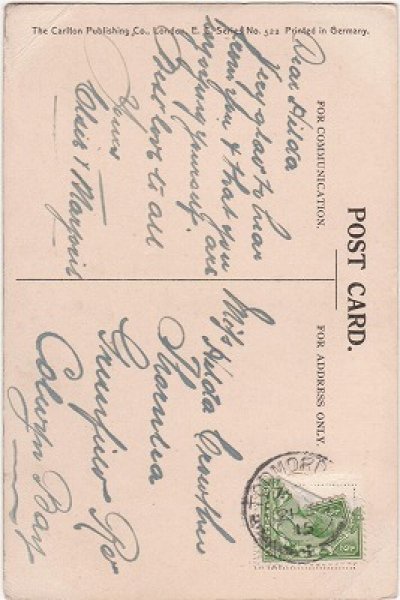 The Carlton Publishing Co., London, E. C. Series No. 522 Printed in Germany.
POST CARD.
FOR COMMUNICATION.
FOR ADDRESS ONLY.
Dear Hilda
Very glad to hear
from you & that you are
enjoying yourself.
Best love to all
Yours
Miss Hilda Crowther
Thornlea
Greenfield Rd
Colwyn Bay